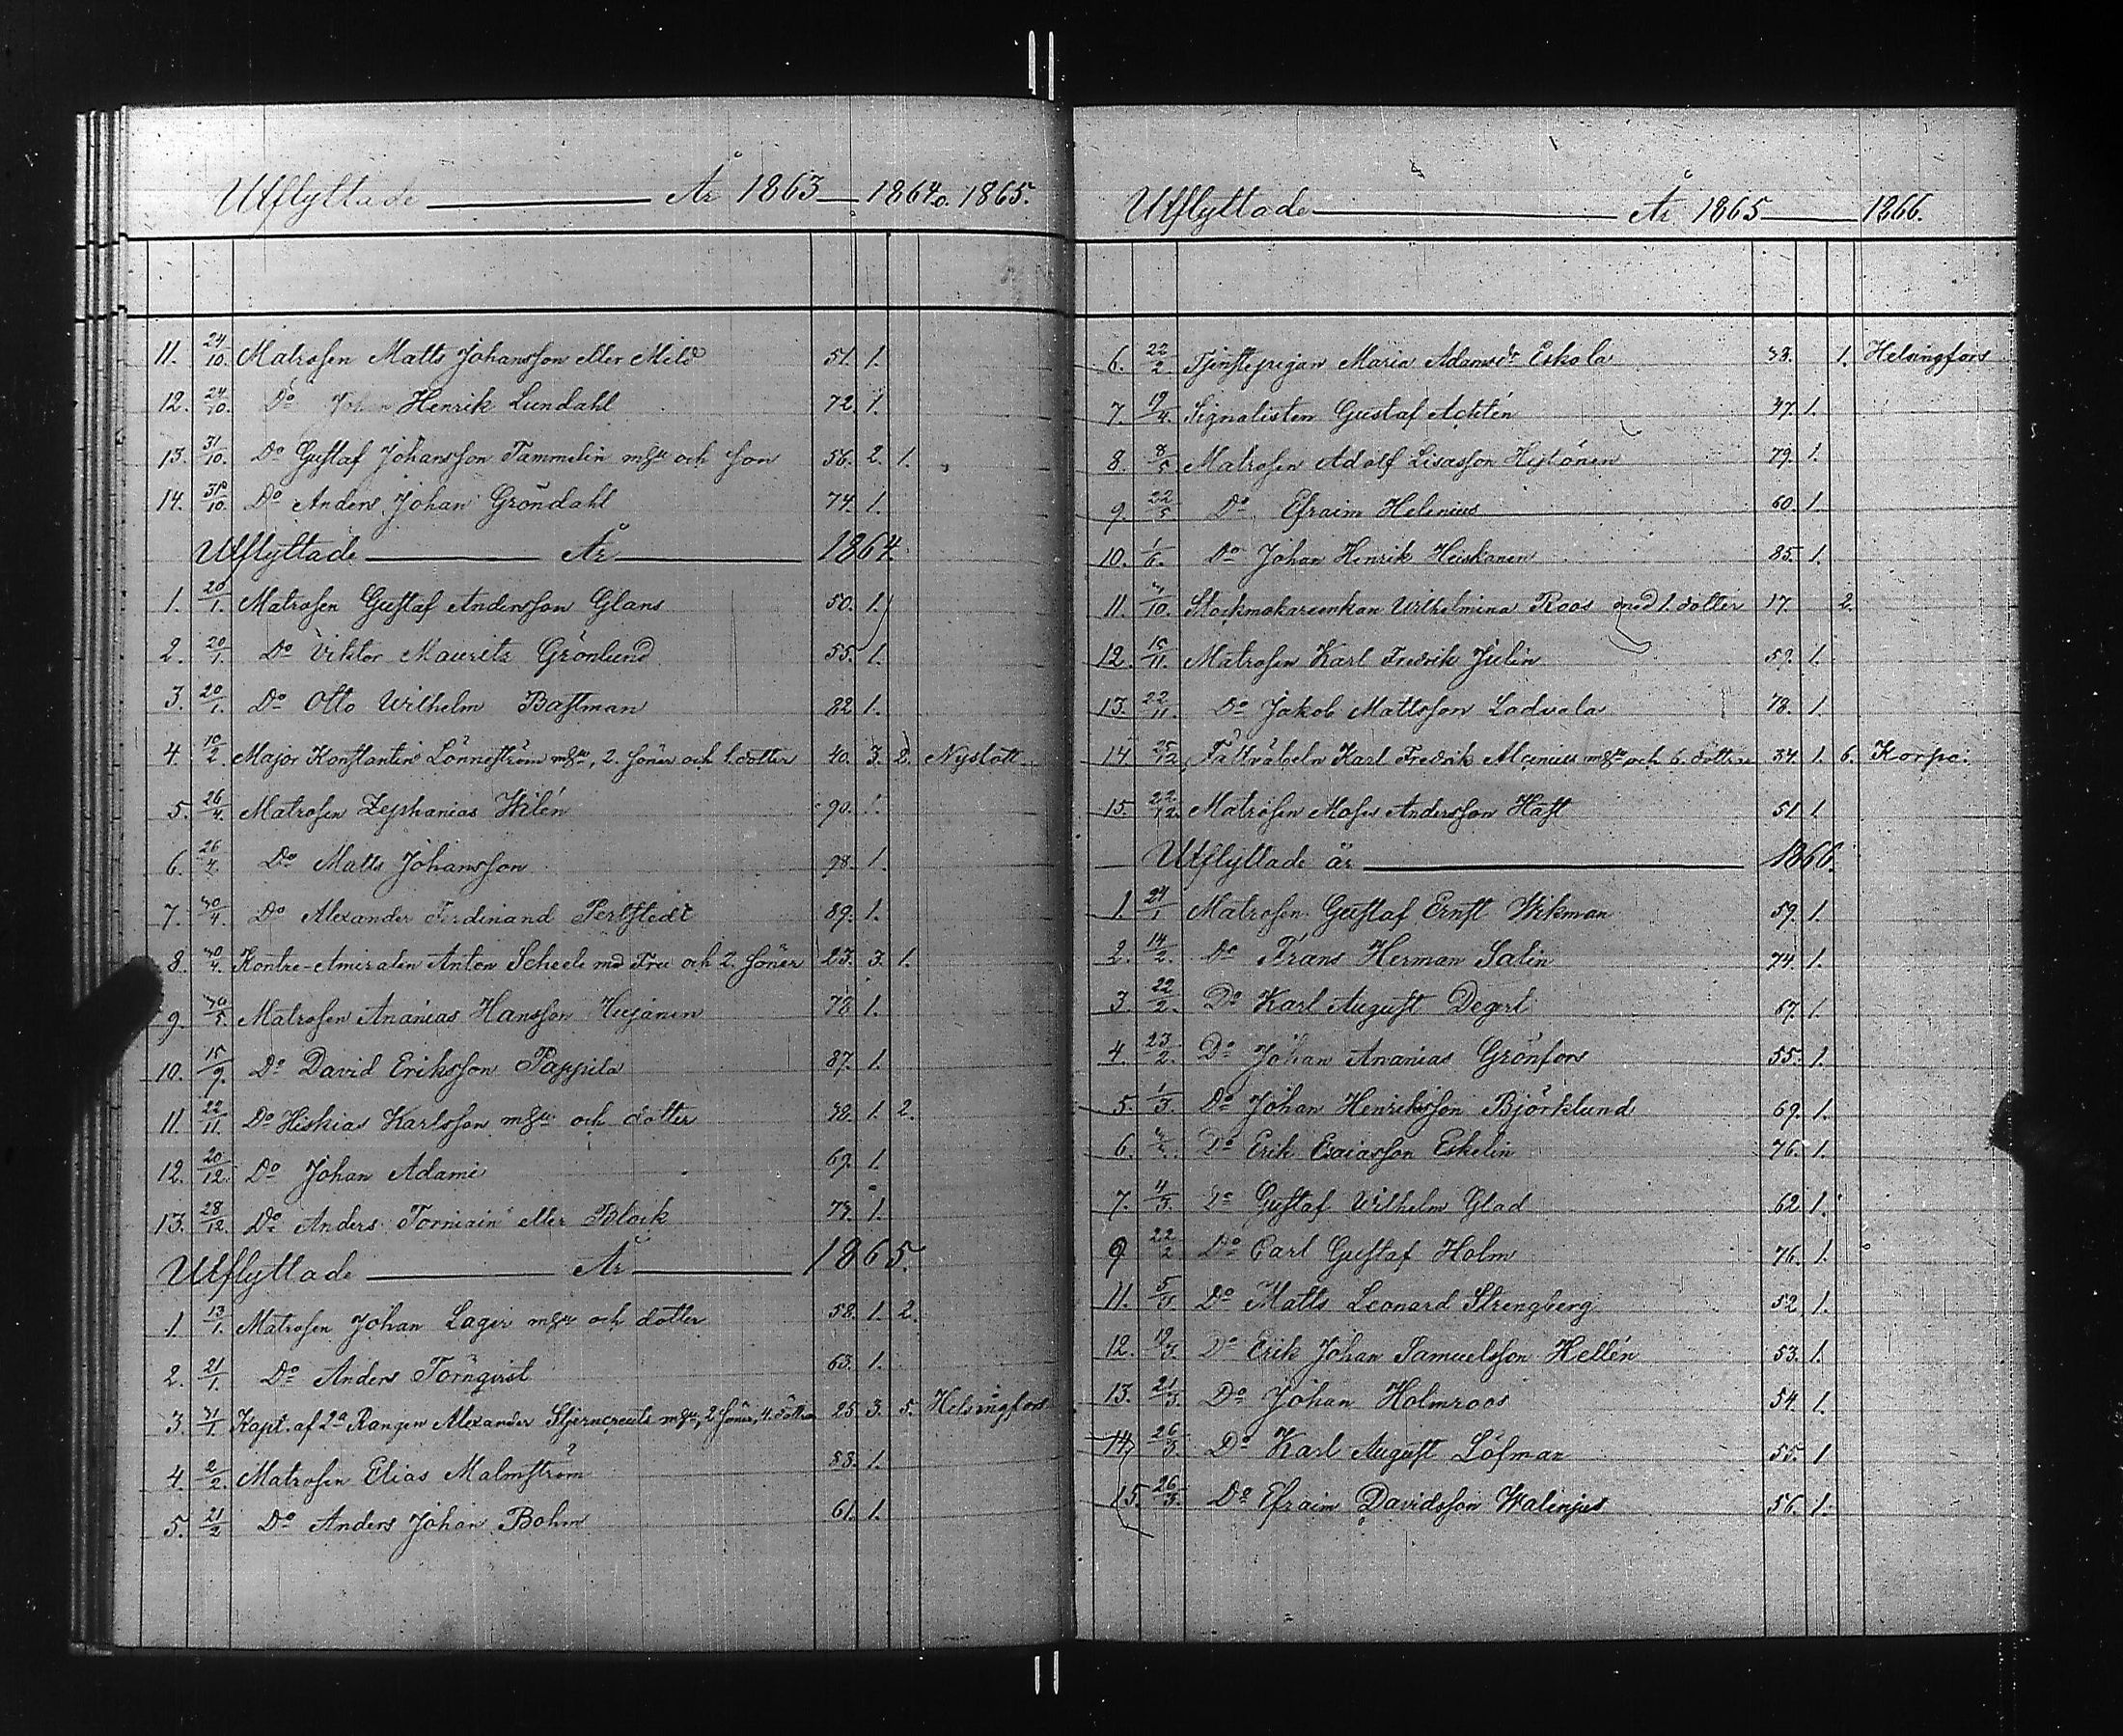 Utflyttade År 1863 1864 o. 1865.
11. 24/10. Matrosen Matts Johansson eller Mild 51. 1.
12. 24/10. Do Johan Henrik Lundahl 72. 1.
13. 31/10. Do Gustaf Johansson Tammelin m hu och son 56. 2. 1.
14. 31/10. Do Anders Johan Gröndahl 74. 1.
Utflyttade År 1864.
1. 20/1. Matrosen Gustaf Andersson Glans 50. 1.
2. 20/1. Do Viktor Mauritz Grönlund 55. 1.
3. 20/1. Do Otto Wilhelm Bastman 82 1.
4. 10/2 Major Konstantin Lönneström m hu, 2. söner och 1. dotter 40. 3. 2. Nyslott
5. 26/4. Matrosen Zephanias Wilén 90. 1.
6. 26/4. Do Matts Johansson 98. 1.
7. 30/4. Do Alexander Ferdinand Perlstedt 89. 1.
8. 30/4. Kontre-Amiralen Anton Scheele md Fru och 2. söner 23. 3. 1.
9. 30/5. Matrosen Ananias Hansson Hujanen 78. 1.
10. 15/9. Do David Eriksson Pappila 87. 1.
11. 22/11. Do Hiskias Karlsson m hu och dotter 38. 1. 2.
12. 20/12. Do Johan Adami 69. 1.
13. 28/12. Do Anders Torniain eller Block 79. 1.
Utflyttade År 1865.
1. 13/1. Matrosen Johan Lager m hu och dotter 58. 1. 2.
2. 21/1. Do Anders Törnqvist 63. 1.
3. 31/1. Kapt. af 2a Rangen Alexander Stjerncreutz m hu, 2 söner, 4. döttr. 25 3. 5. Helsingfors
4. 2/2. Matrosen Elias Malmström 58. 1.
5. 21/2 Do Anders Johan Bohm 61. 1.
Utflyttade År 1865 1866.
6. 22/2. Tjenstepigan Maria Adamsdr Eskola 38. 1. Helsingfors
7. 19/4. Signalisten Gustaf Achtén 37. 1.
8. 8/5 Matrosen Adolf Lisasson Hytönen 79. 1.
9. 22/5 Do Efraim Helenius 60. 1.
10. 1/6. Do Johan Henrik Heiskanen 85. 1.
11. /10. Stockmakareenkan Wilhelmina Roos med 1. dotter 17. 2.
12. 15/11. Matrosen Karl Fredrik Julin 59. 1.
13. 22/11. Do Jakob Mattsson Ladvala 78. 1.
14. 25/12 Fältväbeln Karl Fredrik Alcenius m hu och 6. döttrar 34. 1. 6. Korpo.
15. 22/12. Matrosen Moses Andersson Hast 51 1
Utflyttade år 1866.
1. 24/1 Matrosen Gustaf Ernst Wikman 59. 1.
2. 14/2. Do Frans Herman Salin 74. 1.
3. 22/2. Do Karl August Degert 67. 1.
4. 23/2. Do Johan Ananias Grönfors 55. 1.
5. 1/3. Do Johan Henriksson Björklund 69. 1.
6. Do Erik Esaiasson Eskelin 76. 1.
7. 4/3. Do Gustaf Wilhelm Glad 62 1.
9 22/2 Do Carl Gustaf Holm 76. 1.
11. 5/3 Do Matts Leonard Strengberg 52 1.
12. 19/3. Do Erik Johan Samuelsson Hellén 53. 1.
13. 21/3. Do Johan Holmroos 54. 1.
14. 26/3. Do Karl August Löfman 55. 1
15. 26/3. Do Efraim Davidsson Walinjus 56. 1.